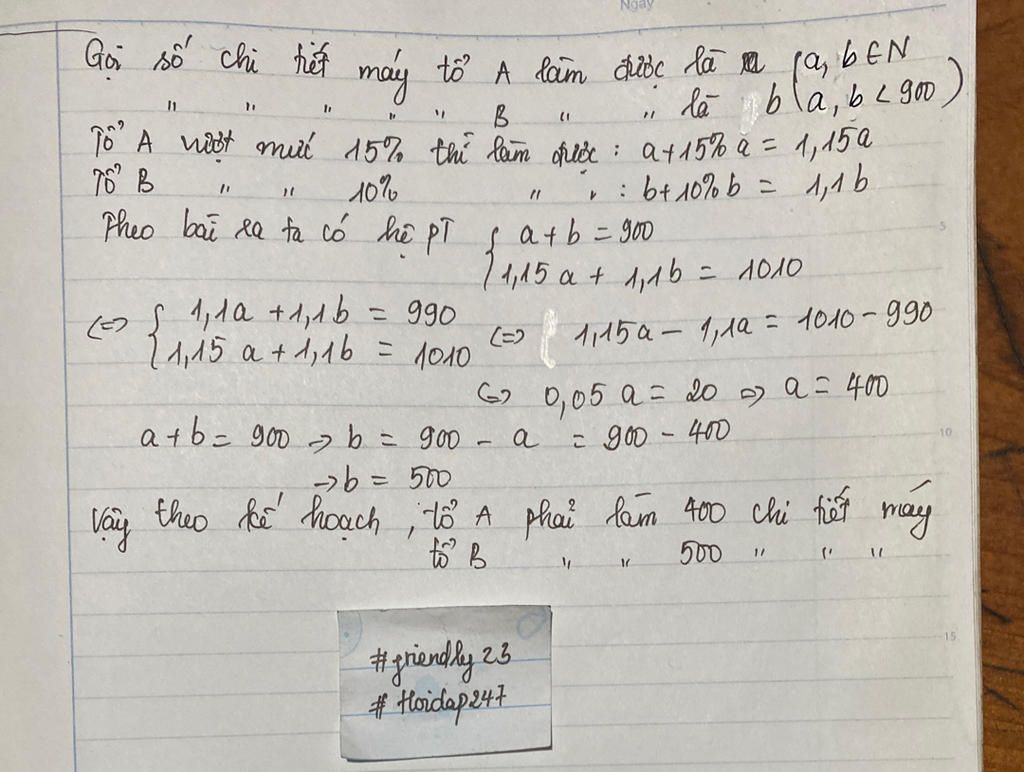 Ngày
Gọi số chi tiết máy tổ A làm được là a (a, b ∈ N
" " " " " B " " là b (a, b < 900)
Tổ A vượt mức 15% thì làm được : a+15% a = 1,15a
Tổ B " " 10% " " : b+10% b = 1,1b
Theo bài ra ta có hệ PT { a + b = 900
1,15a + 1,1b = 1010
<=> { 1,1a + 1,1b = 990 <=> 1,15a - 1,1a = 1010 - 990
1,15 a + 1,1b = 1010
<=> 0,05 a = 20 => a = 400
a + b = 900 → b = 900 - a = 900 - 400
→ b = 500
Vậy theo kế hoạch, tổ A phải làm 400 chi tiết máy
tổ B " " 500 " " "
#friendly23
#Hoidap247
5
10
15